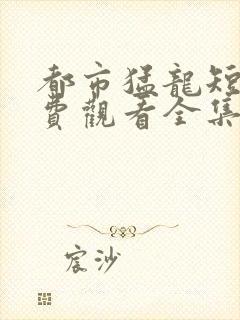 都市猛龍短
費觀看全集
宸沙